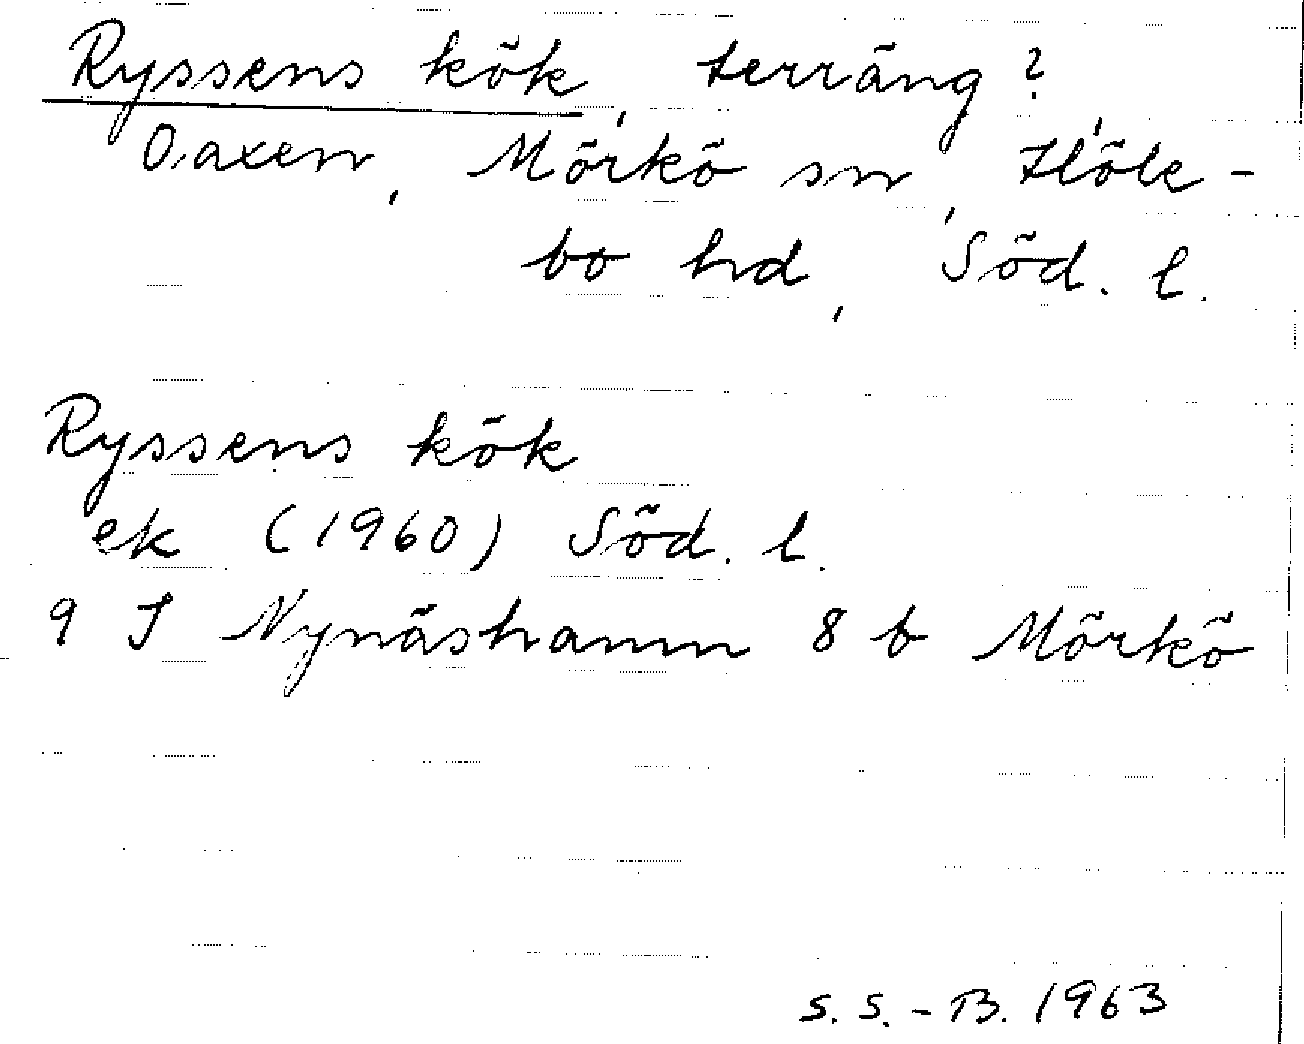 Ryssens kök, terräng?,
Oaxen, Mörkö sn, Höle-
bo hd, Söd. l.
Ryssens kök
ek (1960) Söd. l.
9 I Nynäshamn 8 b Mörkö
S. S. - B. 1963